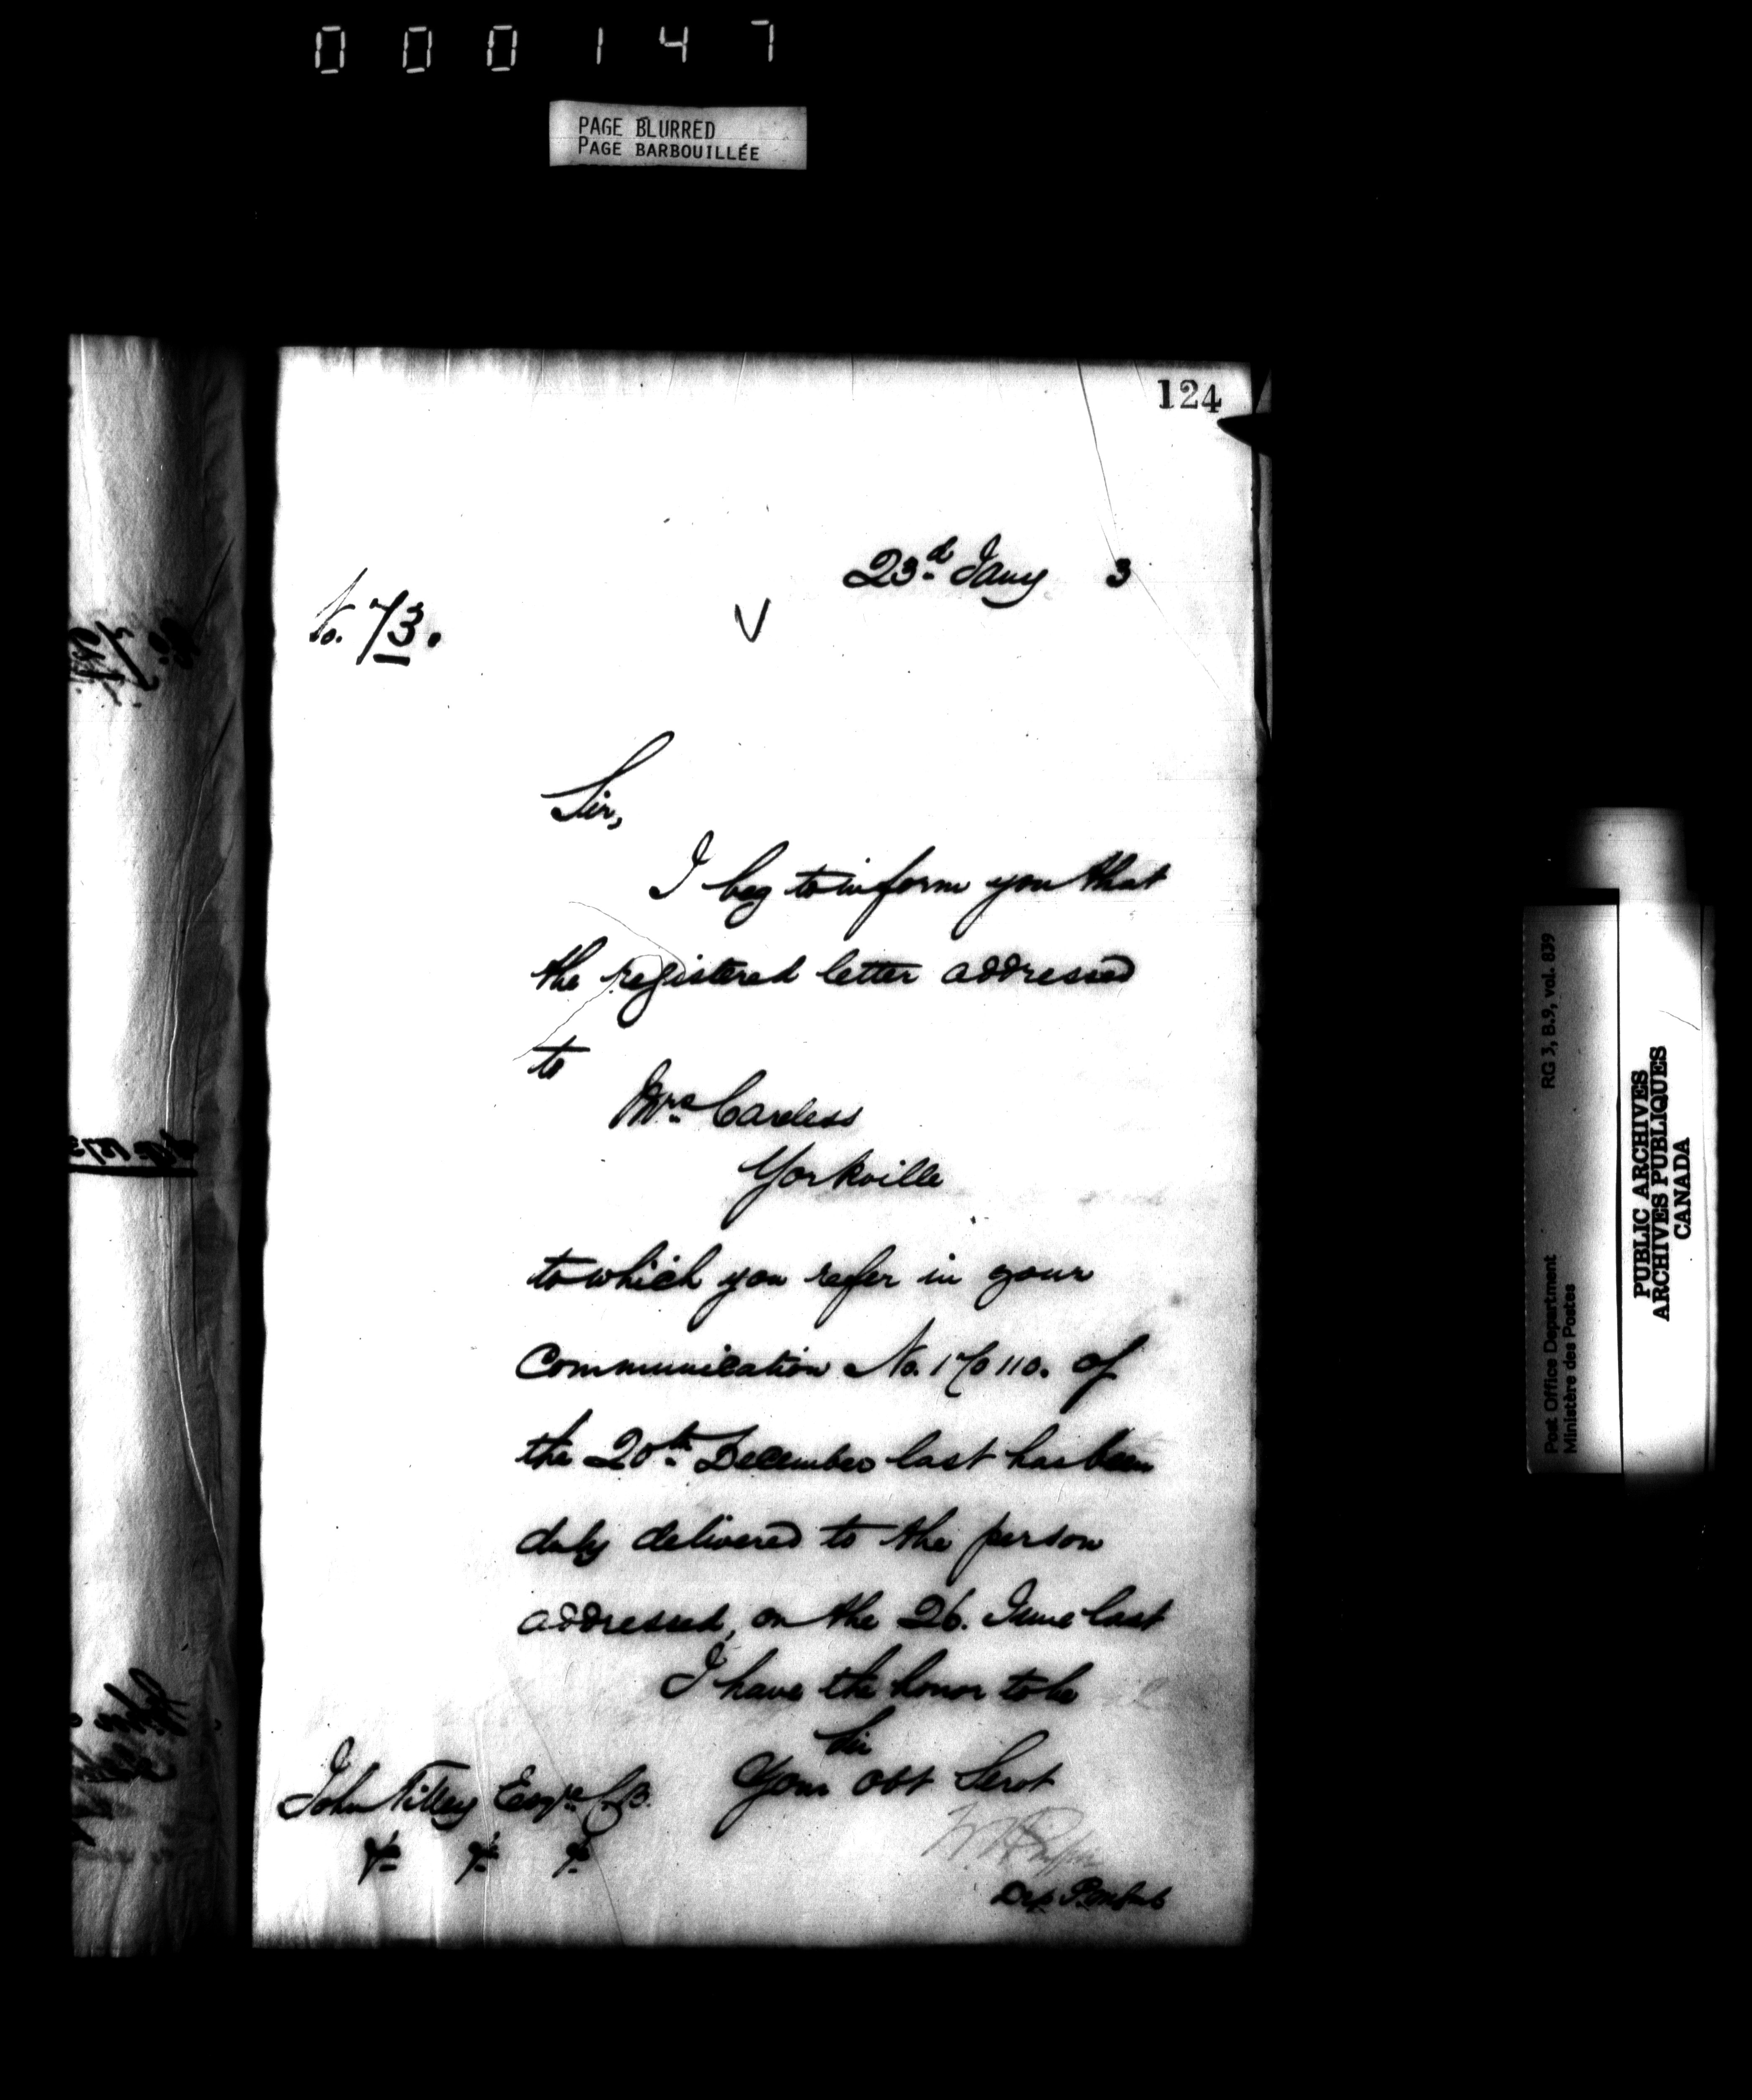 000147
PAGE BLURRED
PAGE BARBOUILLÉE
124
23d. Jany 3
No. 73.
V
Sir,
I beg to inform you that
the registered letter addressed
to
Mrs. Careless
Yorkville
to which you refer in your
Communication No. 170110. of
the 20th. December last has been
duly delivered to the person
addressed, on the 26. June last
I have the honor to be
Sir
Your obt Servt
John Tilley Esqre C.B.
&c &c &c
Dep. P. M. Genl
RG 3, B.9, vol. 839
Post Office Department
Ministère des Postes
PUBLIC ARCHIVES
ARCHIVES PUBLIQUES
CANADA